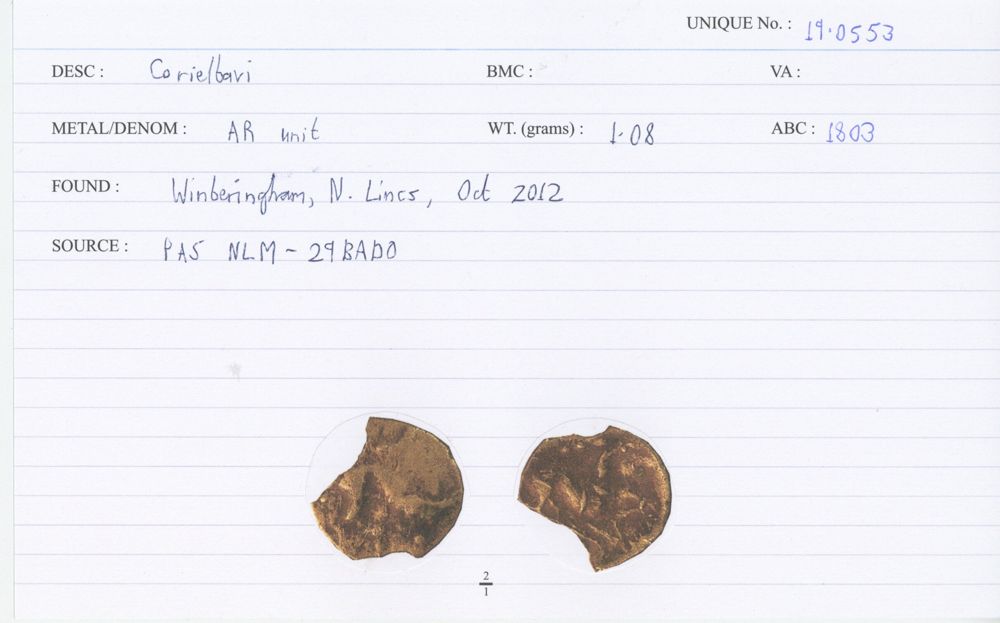 UNIQUE No. : 19.0553
DESC : Corieltavi BMC : VA :
METAL/DENOM : AR unit WT. (grams) : 1.08 ABC : 1803
FOUND : Winteringham, N. Lincs, Oct 2012
SOURCE : PAS NLM - 29BAD0
2
1